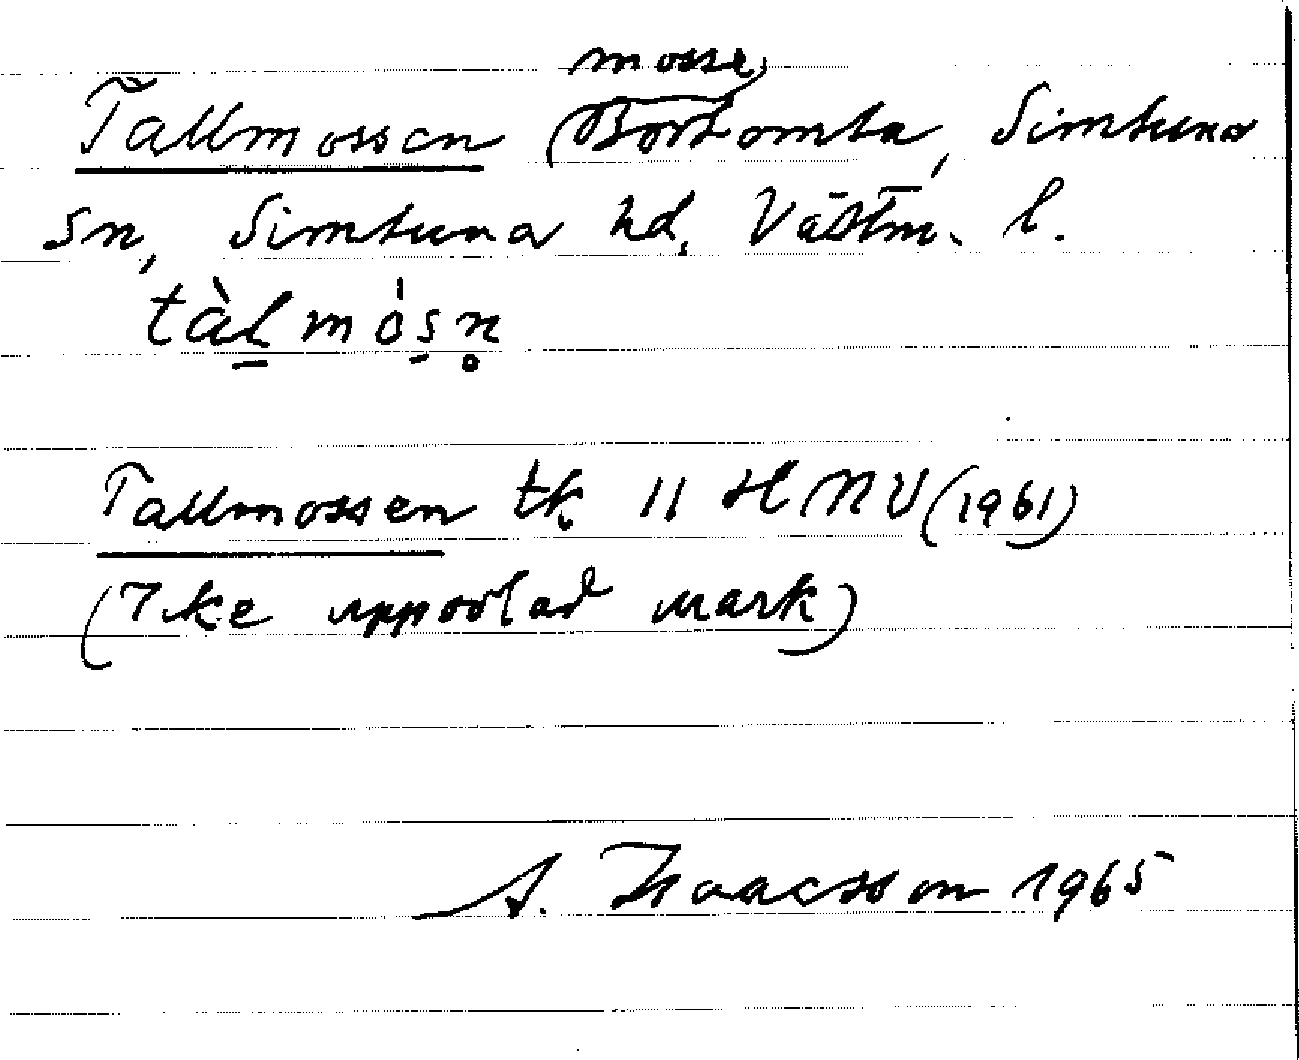 mosse,
Tallmossen (Bortomta, Simtuna
sn, Simtuna hd, Västm. l.
tàl̠mós̠n̥
Tallmossen tk 11 H NV (1961)
(Icke uppodlad mark)
A. Isaacsson 1965